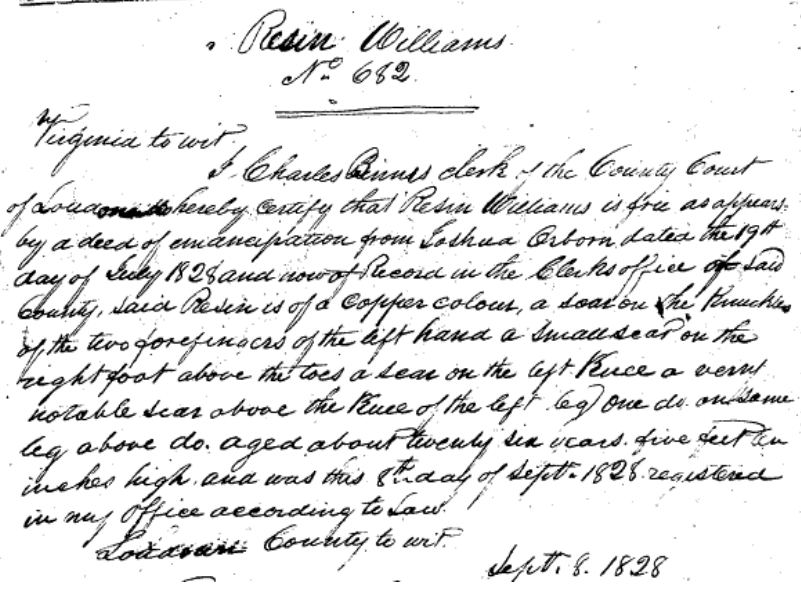 Resin Williams
No. 682
Virginia to wit
I Charles Binns clerk of the County Court
of Loudoun do hereby certify that Resin Williams is free as appears
by a deed of emancipation from Joshua Osborn dated the 19th
day of July 1828 and now of Record in the Clerks office of said
County, said Resin is of a Copper colour, a scar on the Knuckles
of the two forefingers of the left hand a small scar on the
right foot above the toes a scar on the left Knee a verry
notable scar above the Knee of the left leg one do. on same
leg above do. aged about twenty six years five feet ten
inches high and was this 8th day of Sept. 1828 registered
in my office according to Law.
Loudoun County to wit.
Sept. 8. 1828